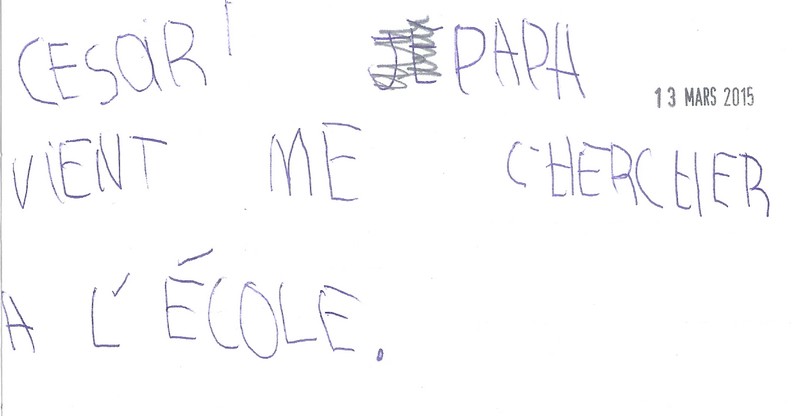 CESaR PAPA
13 MARS 2015
VIENT ME CHERCHER
A L'ÉCOLE.